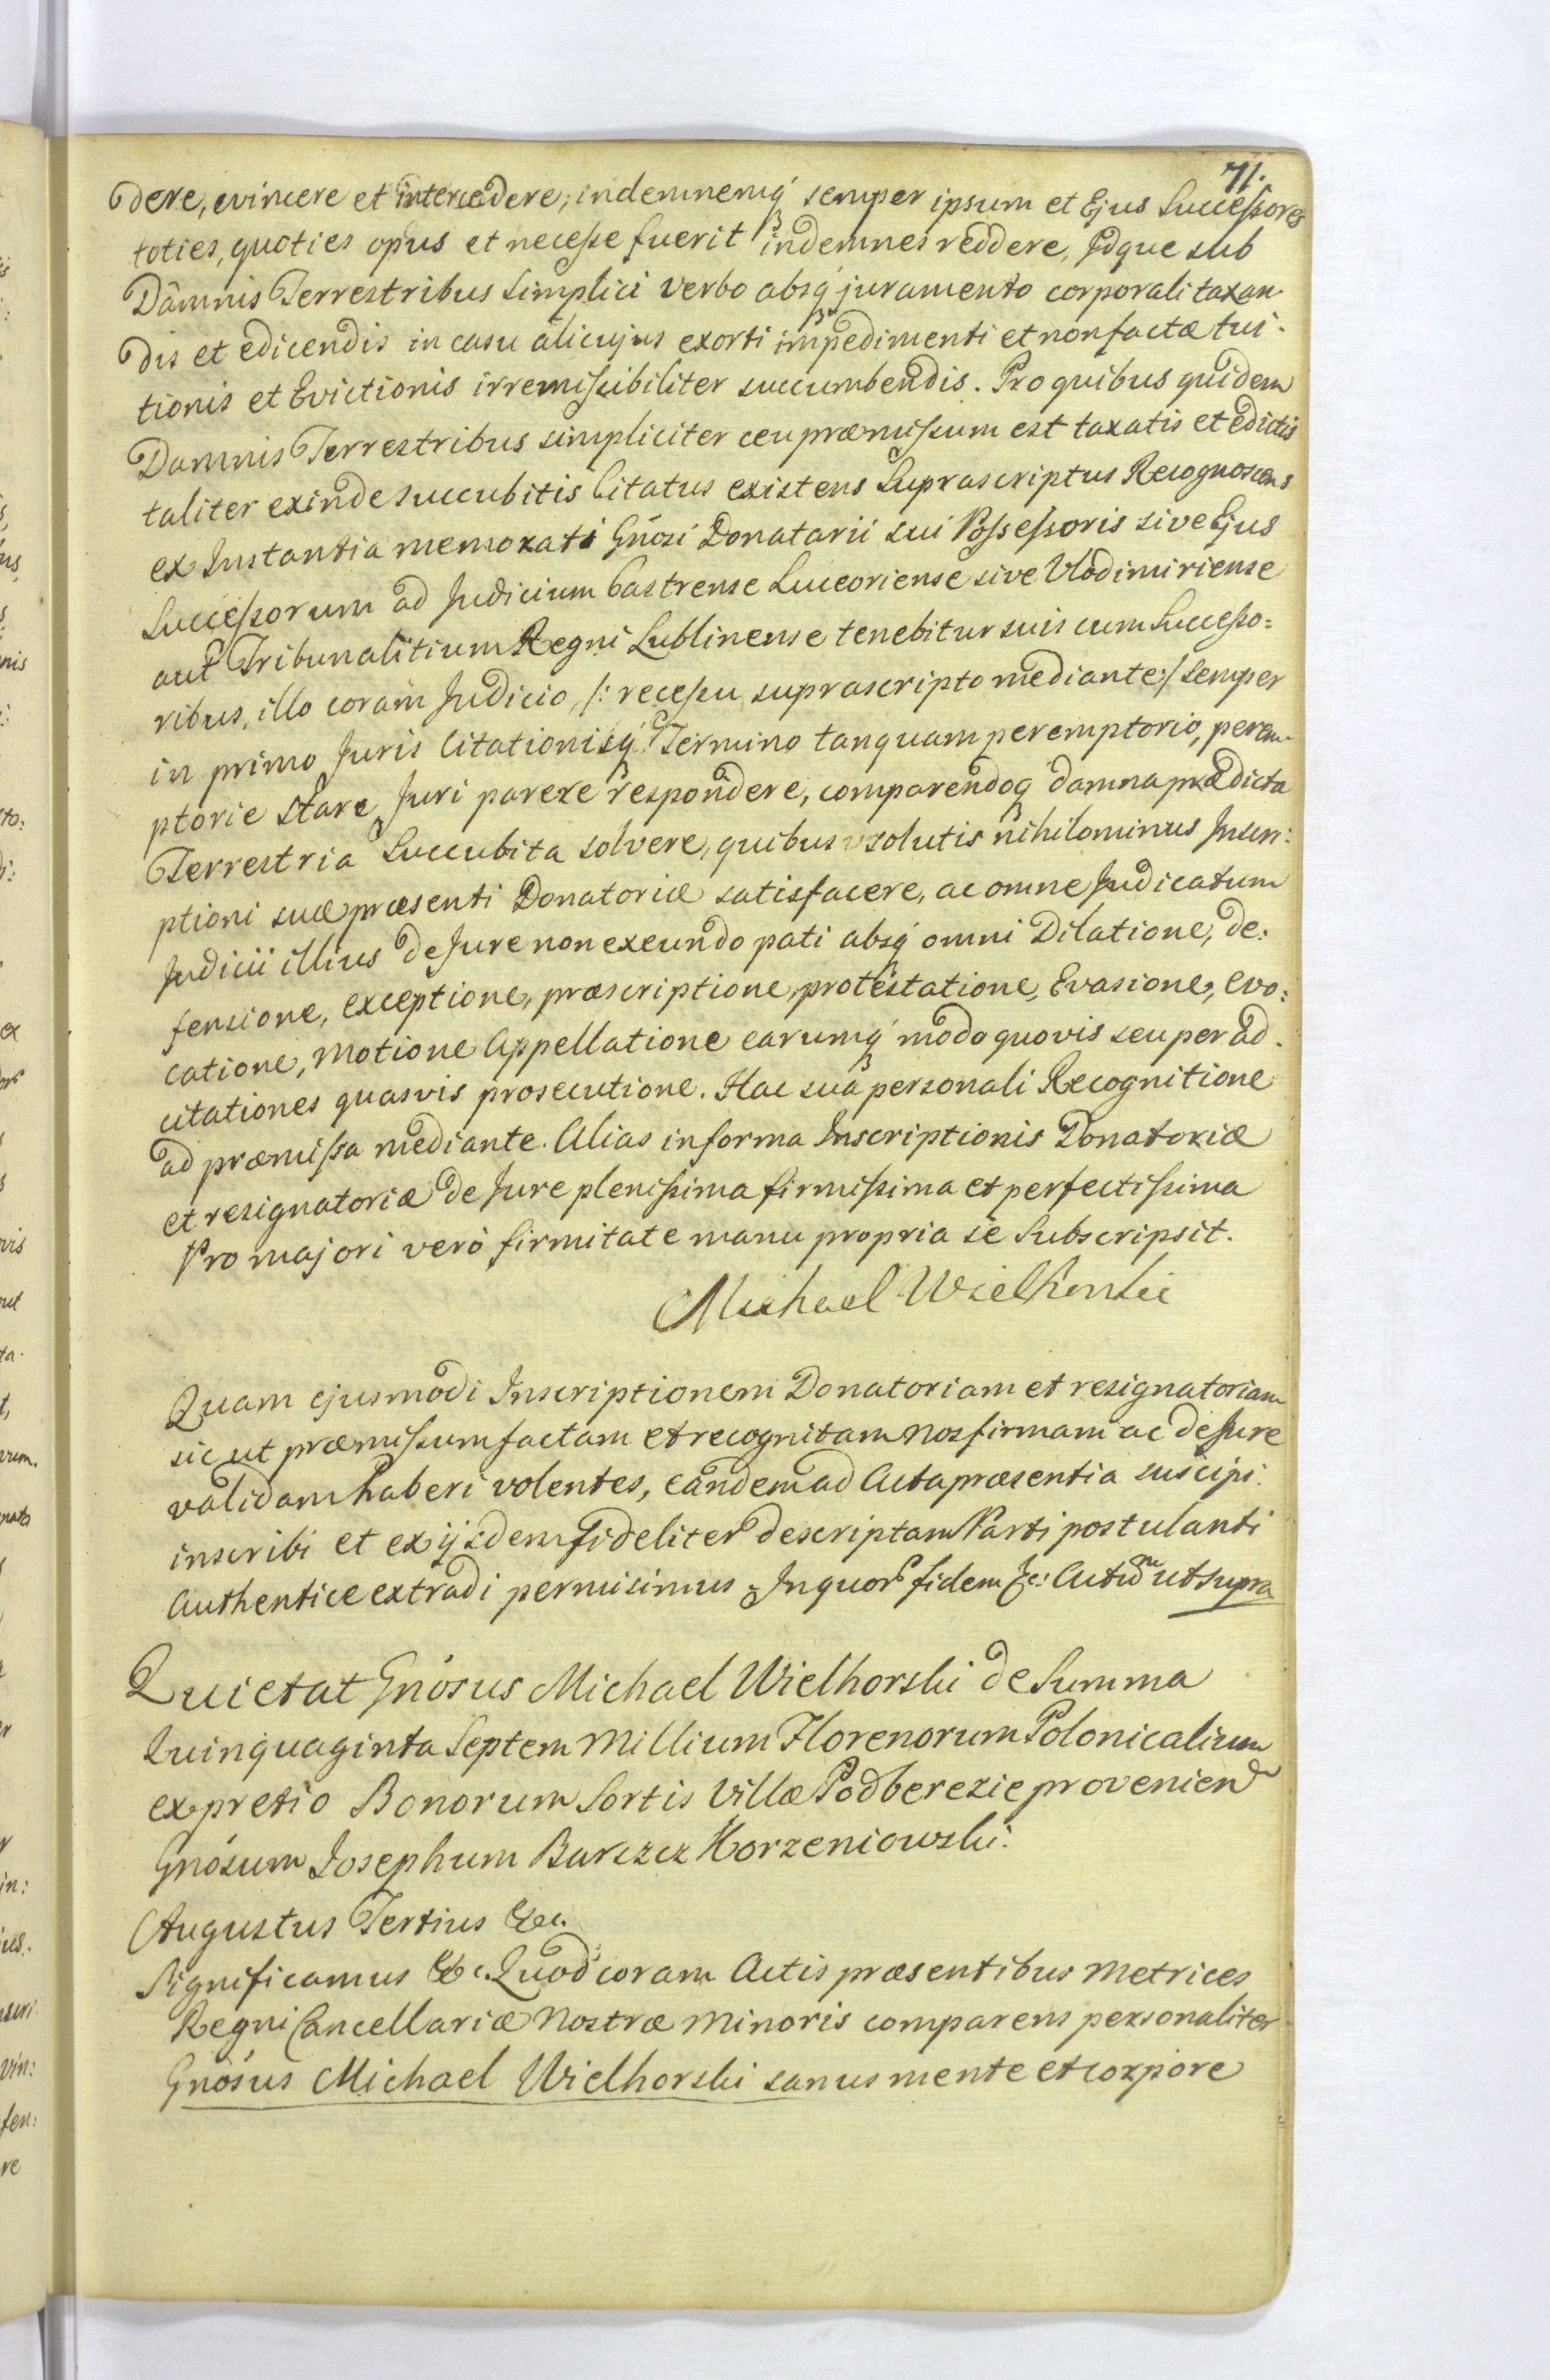 71.
dere, evincere et intercedere, indemnemq́ semper ipsum et Ejus Successores
toties, quoties opus et necesse fuerit indemnes reddere, Idque sub
Damnis Terrestribus Simplici verbo absq́ juramento corporali taxan-
dis et edicendis in casu alicujus exorti impedimenti et non factæ tui-
tionis et Evictionis irremissibiliter succumbendis. Pro quibus quidem
Damnis Terrestribus simpliciter ceu præmissum est taxatis et edictis
taliter exinde succubitis Citatus existens Suprascriptus Recognoscens
ex Instantia memorati Gńosi Donatarii sui Possessoris sive Ejus
Successorum ad Judicium Castrense Luceoriense sive Vlodimiriense
aut Tribunalitium Regni Lublinense tenebitur suis cum Successo=
ribus, illo coram Judicio, /: recessu suprascripto mediante :/ Semper
in primo Juris Citationisq́ Termino tanquam peremptorio, perem-
ptorie stare, Juri parere respondere, comparendoq́ damna prædicta
Terrestria Succubita solvere, quibus solutis nihilominus Inscri:
ptioni suæ præsenti Donatoriæ satisfacere, ac omne Judicatum
Judicii illius de Jure non exeundo pati absq́ omni Dilatione, de:
fensione, exceptione, præscriptione, protestatione, Evasione, evo:
catione, Motione Appellatione earumq́ modo quovis seu per ad-
citationes quasvis prosecutione. Hac sua personali Recognitione
ad præmissa mediante. Alias in forma Inscriptionis Donatoriæ
et resignatoriæ de Jure plenissima firmissima et perfectissima
Pro majori verò firmitate manu propria se Subscripsit.
Michael Wielhorski
Quam ejusmodi Inscriptionem Donatoriam et resignatoriam
sic ut præmissum factam et recognitam nos firmam ac de Jure
validam haberi volentes, eandem ad Acta præsentia suscipi
inscribi et ex ijsdem fideliter descriptam Parti postulanti
Authentice extradi permisimus. In quor fidem &c: Actum ut supra
Quietat Gńosus Michael Wielhorski de Summa
Quinquaginta Septem Millium Florenorum Polonicalium
ex pretio Bonorum Sortis Villæ Podberezie provenien
Gńosum Josephum Barczcz Korzeniowski.
Augustus Tertius &c.
Significamus &c. Quod coram Actis præsentibus Metrices
Regni Cancellariæ Nostræ Minoris comparens personaliter
Gńosus Michael Wielhorski sanus mente et corpore